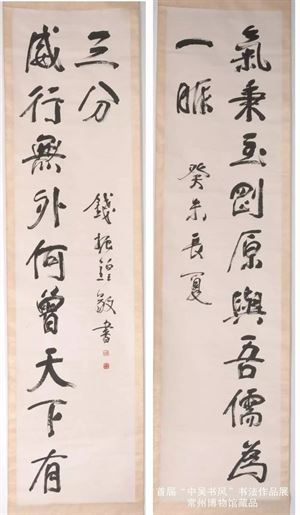 氣秉至剛原與吾儒為
一脈
癸未長夏
威行無外何曾天下有
三分
錢振鍠敬書
首届“中吴书风”书法作品展
常州博物馆藏品